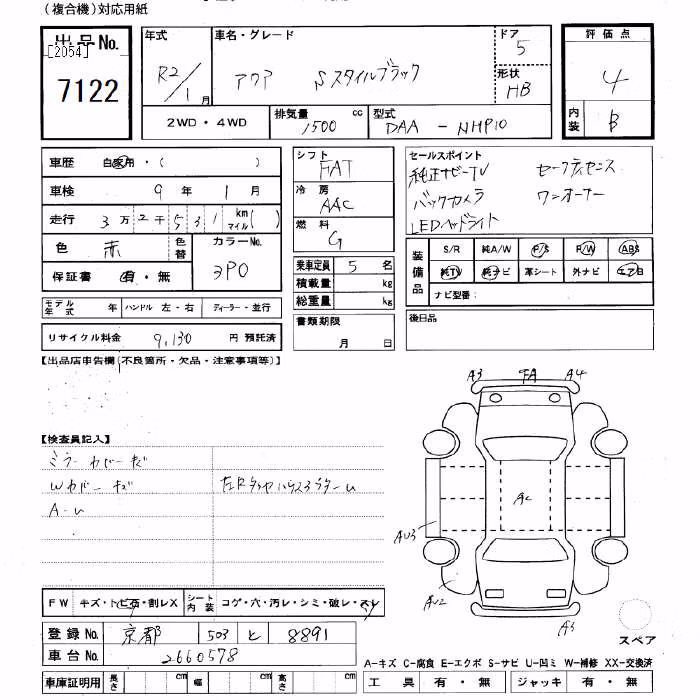 (複合機)対応用紙
出品No.
[2054]
7122
年式
R2/1月
車名・グレード
アクア Sスタイルブラック
ドア
5
形状
HB
評価点
4
内装
B
2WD・4WD
排気量
1500 cc
型式
DAA - NHP10
車歴 自家用・( )
車検 9年 1月
走行 3万2千531 km マイル( )
色 赤
色替
カラーNo.
3P0
保証書 有・無
モデル年式 年 ハンドル 左・右 ディーラー・並行
リサイクル料金 9,130 円 預託済
シフト
FAT
冷房
AAC
燃料
G
乗車定員 5 名
積載量 kg
総重量 kg
書類期限
月 日
セールスポイント
純正ナビーTV セーフティセンス
バックカメラ ワンオーナー
LEDヘッドライト
装備品
S/R 純A/W P/S P/W ABS
純TV 純ナビ 革シート 外ナビ エアB
ナビ型番:
後日品
【出品店申告欄(不良箇所・欠品・注意事項等)】
【検査員記入】
ミラーカバーキズ
Wカバーキズ
A-U
A3 FA A4
AC
AU3
AU2
A3
スペア
FW キズ・トビ石・割レX
シート内装 コゲ・穴・汚レ・シミ・破レ・スレ
登録No. 京都 503 と 8891
車台No. 2660578
車庫証明用 長さ cm 幅 cm 高さ cm
A-キズ C-腐食 E-エクボ S-サビ U-凹ミ W-補修 XX-交換済
工具 有・無 ジャッキ 有・無